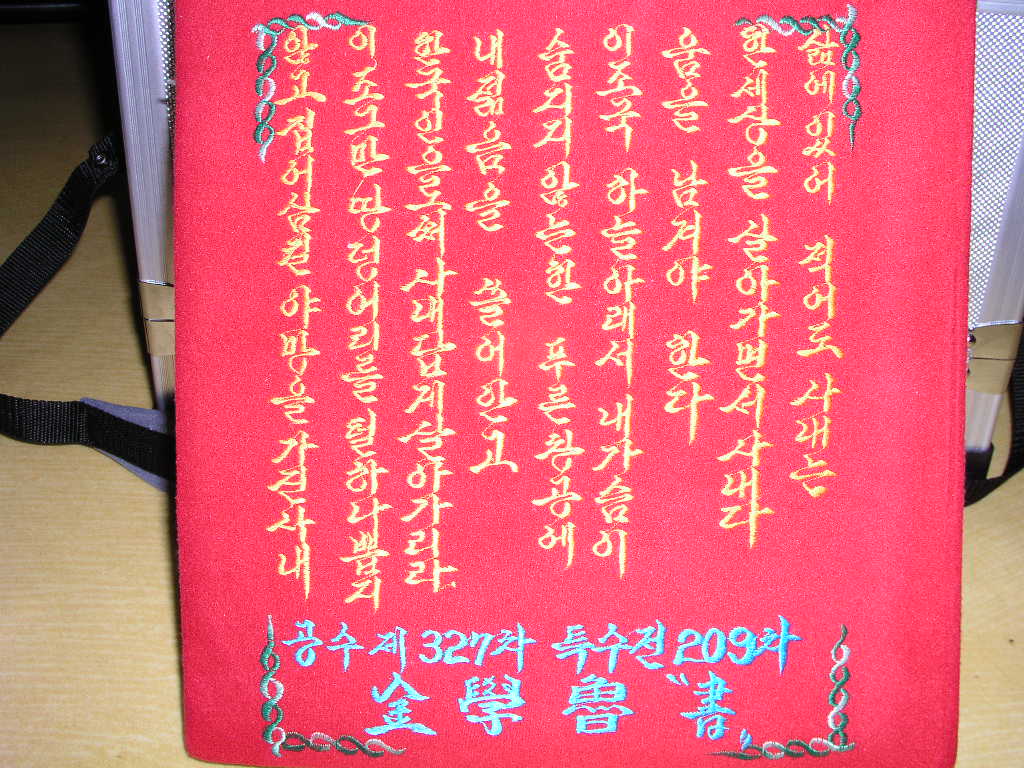 삶에 있어 적어도 사내는
한세상을 살아가면서 사내다
움을 남겨야 한다
이조국 하늘아래서 내가슴이
숨지지 않는한 푸른창공에
내젊음을 쓸어안고
한국인으로써 사내답게살아가리라.
이 조그만 땅덩어리를 털하나 뽑지
않고 집어삼킨 야망을가진사내
공수 제327차 특수전209차
金學魯 〝書〟